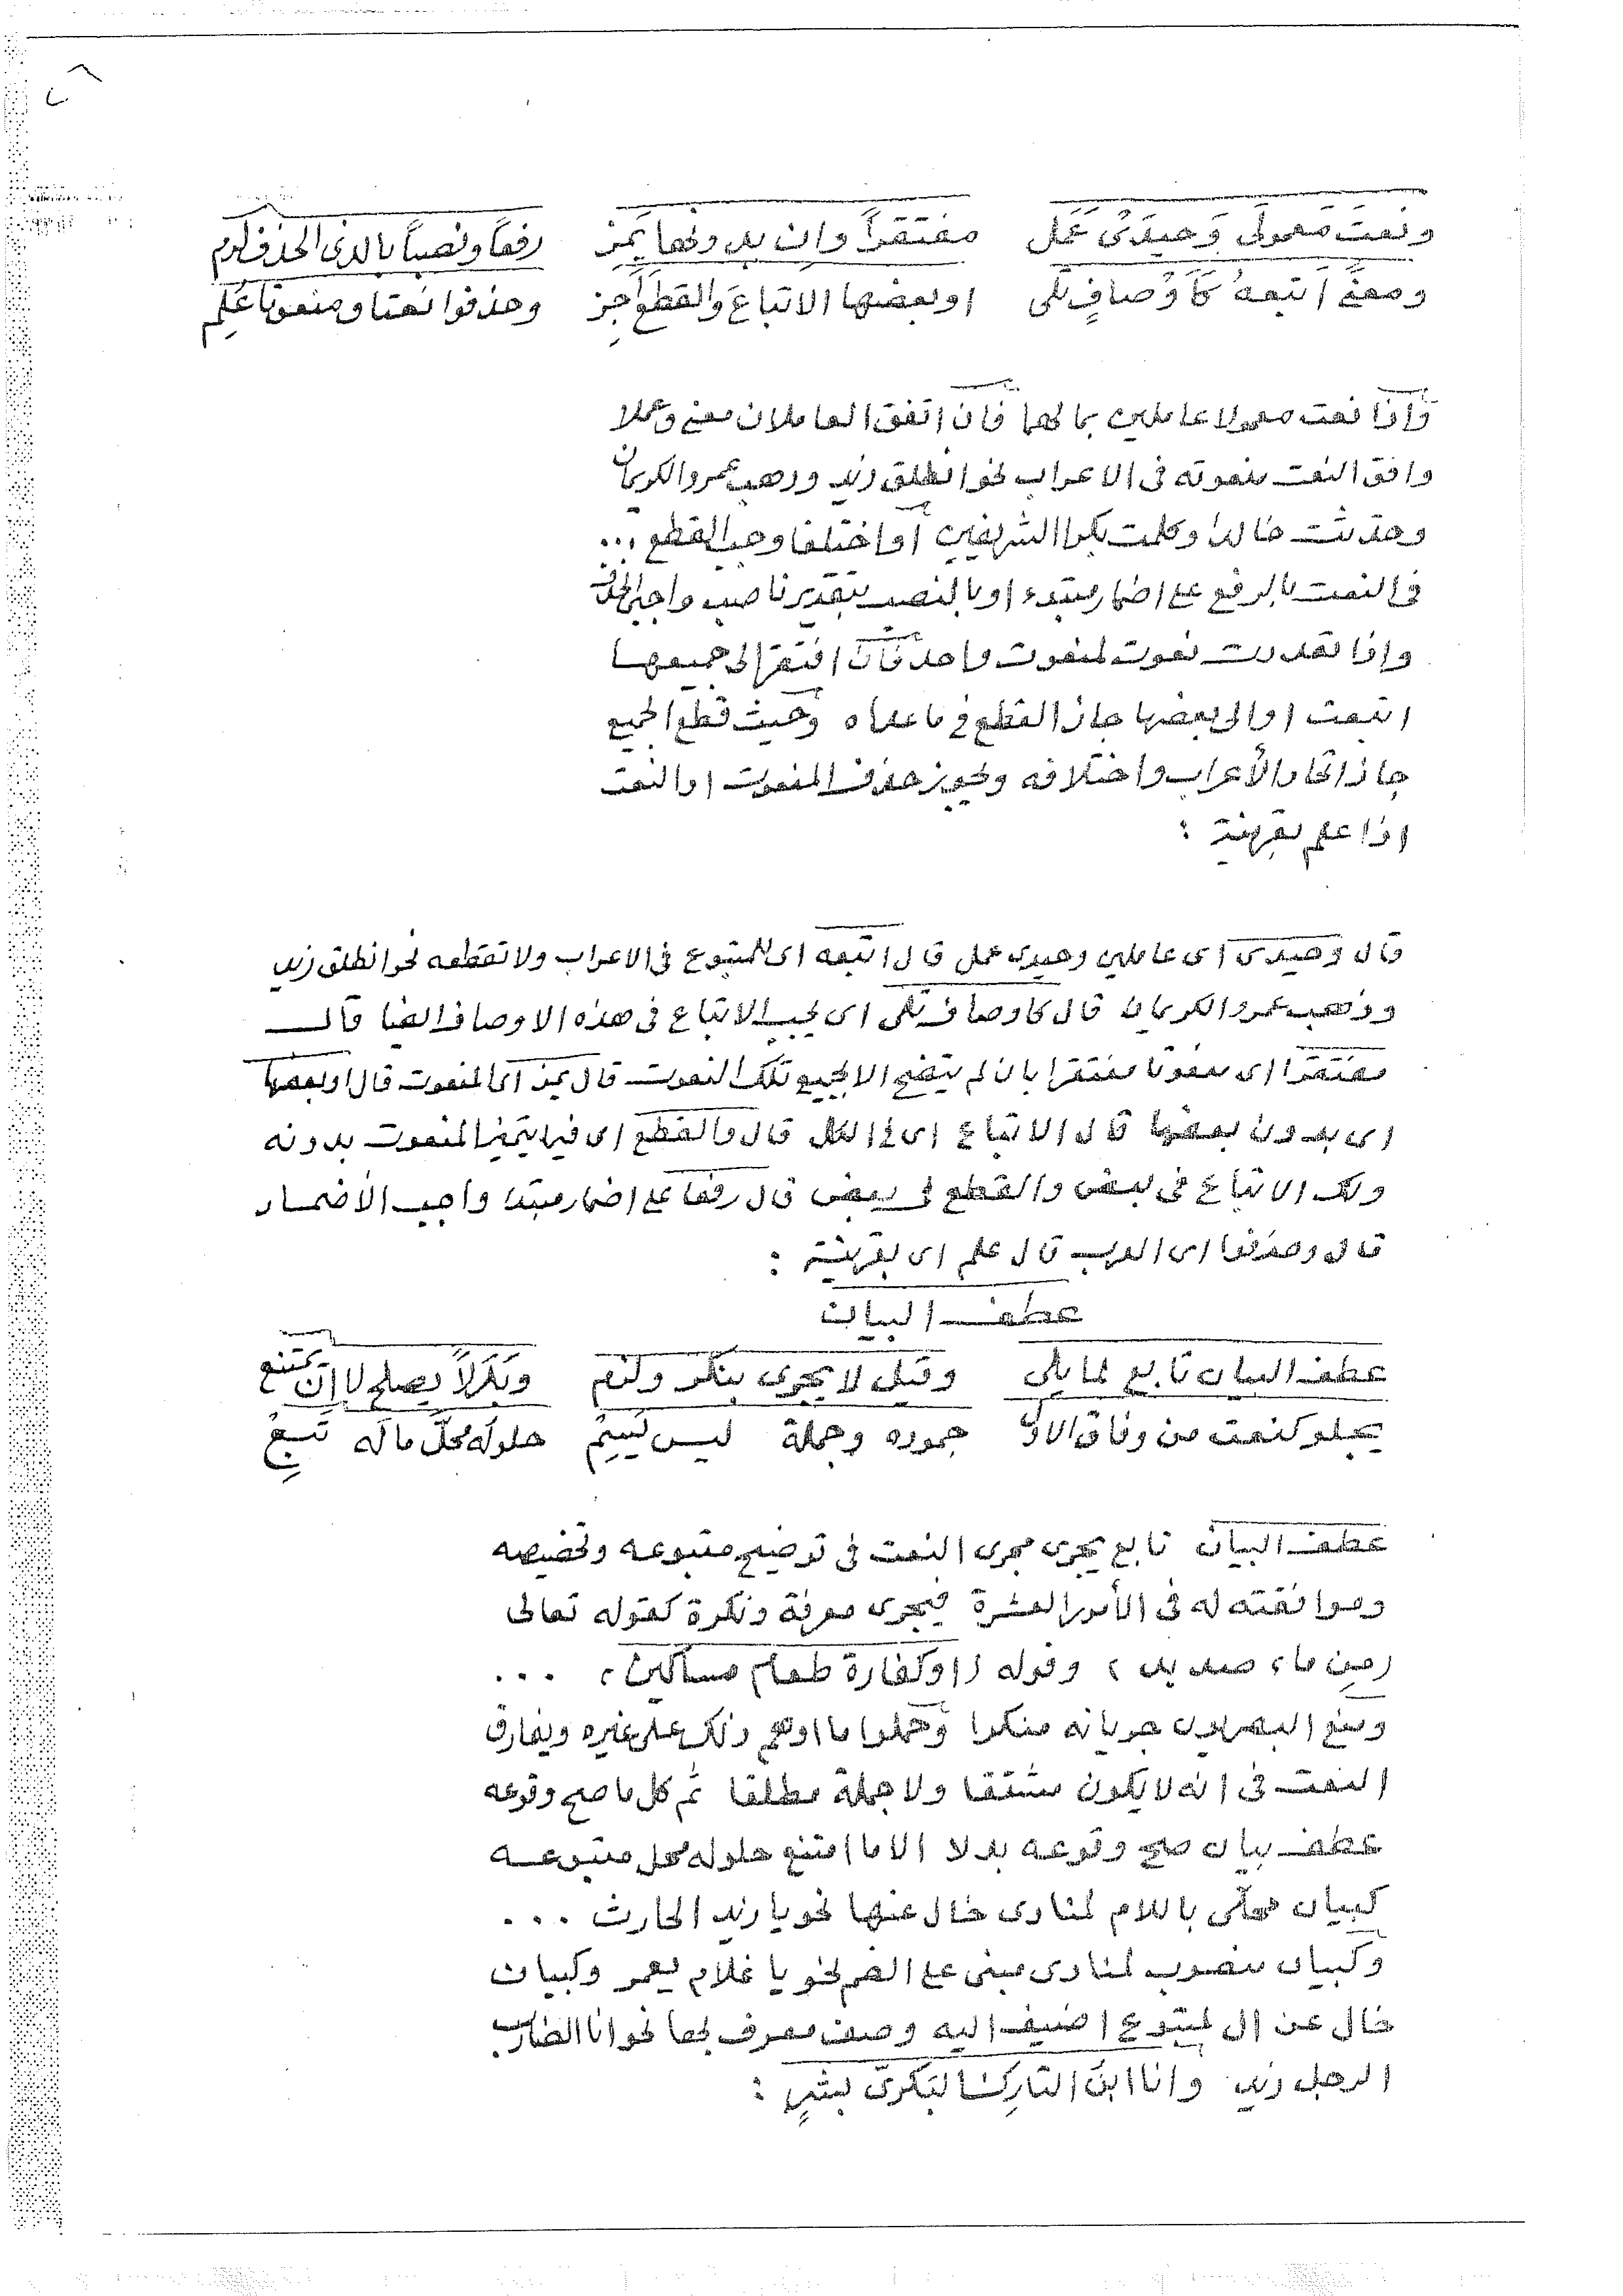 ونعتَ معمولَي وَحيدَيْ عَمَل مفتقراً وان بدونها يَمِز رفعاً ونصباً بالذي الحذف لزم
ومعنًى أتبعهُ كَأوْصافٍ تلى او بعضها الاتباعَ والقطعَ أجِز وحذفوا نعتا ومنعوتا عُلِم
وَإذا نعت معمولا عاملين بمالهما فان اتفق العاملان معنى وعملا
وافق النعت منعوته فى الاعراب نحو انطلق زيد وذهب عمرو الكريمان
وحدثت خالدا وكلمت بكرا الشريفين أواختلفا وجب القطع ...
فى النعت بالرفع على اضمار مبتدء او بالنصب بتقدير ناصب واجبي الحذف
واذا تعددت نعوت لمنعوت واحد فان افتقر الى جميعها
اتبعت او الى بعضها جاز القطع فى ما عداه وحيث قطع الجميع
جاز اتحاد الأعراب واختلافه ويجوز حذف المنعوت او النعت
اذا علم بقرينة :
قال وحيدى اى عاملين وحيدى عمل قال اتبعه اى للمتبوع فى الاعراب ولا تقطعه نحو انطلق زيد
وذهب عمرو الكريمان قال كاوصاف تلى اى يجب الاتباع فى هذه الاوصاف ايضا قال
مفتقرا اى منعوتا مفتقرا بان لم يتضح الا بجميع تلك النعوت قال يمز اى المنعوت قال او بعضها
اى بدون بعضها قال الاتباع اى فى الكل قال والقطع اى فيما يتميز المنعوت بدونه
ولك الاتباع فى بعض والقطع فى بعض قال رفعا على اضمار مبتدا واجب الأضمار
قال وحذفوا اى العرب قال علم اى بقرينة :
عطف البيان
عطف البيان تابع لما يلى وقيل لا يجرى بنكر ولنعم وبَدَلاً يصلح لا إن يمتنع
يجلو كنعت من وفاق الاوّل جموده وجملة ليس يَسِمْ حلولَه محلَّ ما لَه تَبِعْ
عطف البيان تابع يجرى مجرى النعت فى توضيح متبوعه وتخصيصه
وموافقته له فى الأمور العشرة فيجرى معرفة ونكرة كقوله تعالى
(من ماء صديد) وقوله (او كفارة طعام مساكين) ...
ومنع البصريون جريانه منكرا وحملوا ما اوهم ذلك على غيره ويفارق
النعت فى انه لا يكون مشتقا ولا جملة مطلقا ثم كل ما صح وقوعه
عطف بيان صح وقوعه بدلا الا ما امتنع حلوله محل متبوعه
كبيان محلّى باللام لمنادى خال عنها نحو يا زيد الحارث ...
وكبيان منصوب لمنادى مبنى على الضم نحو يا غلام يعمر وكبيان
خال عن ال لمتبوع اضيف اليه وصف معرف بها نحو انا الضارب
الرجل زيد وانا ابن التاركِ البكرىّ بشرٍ :